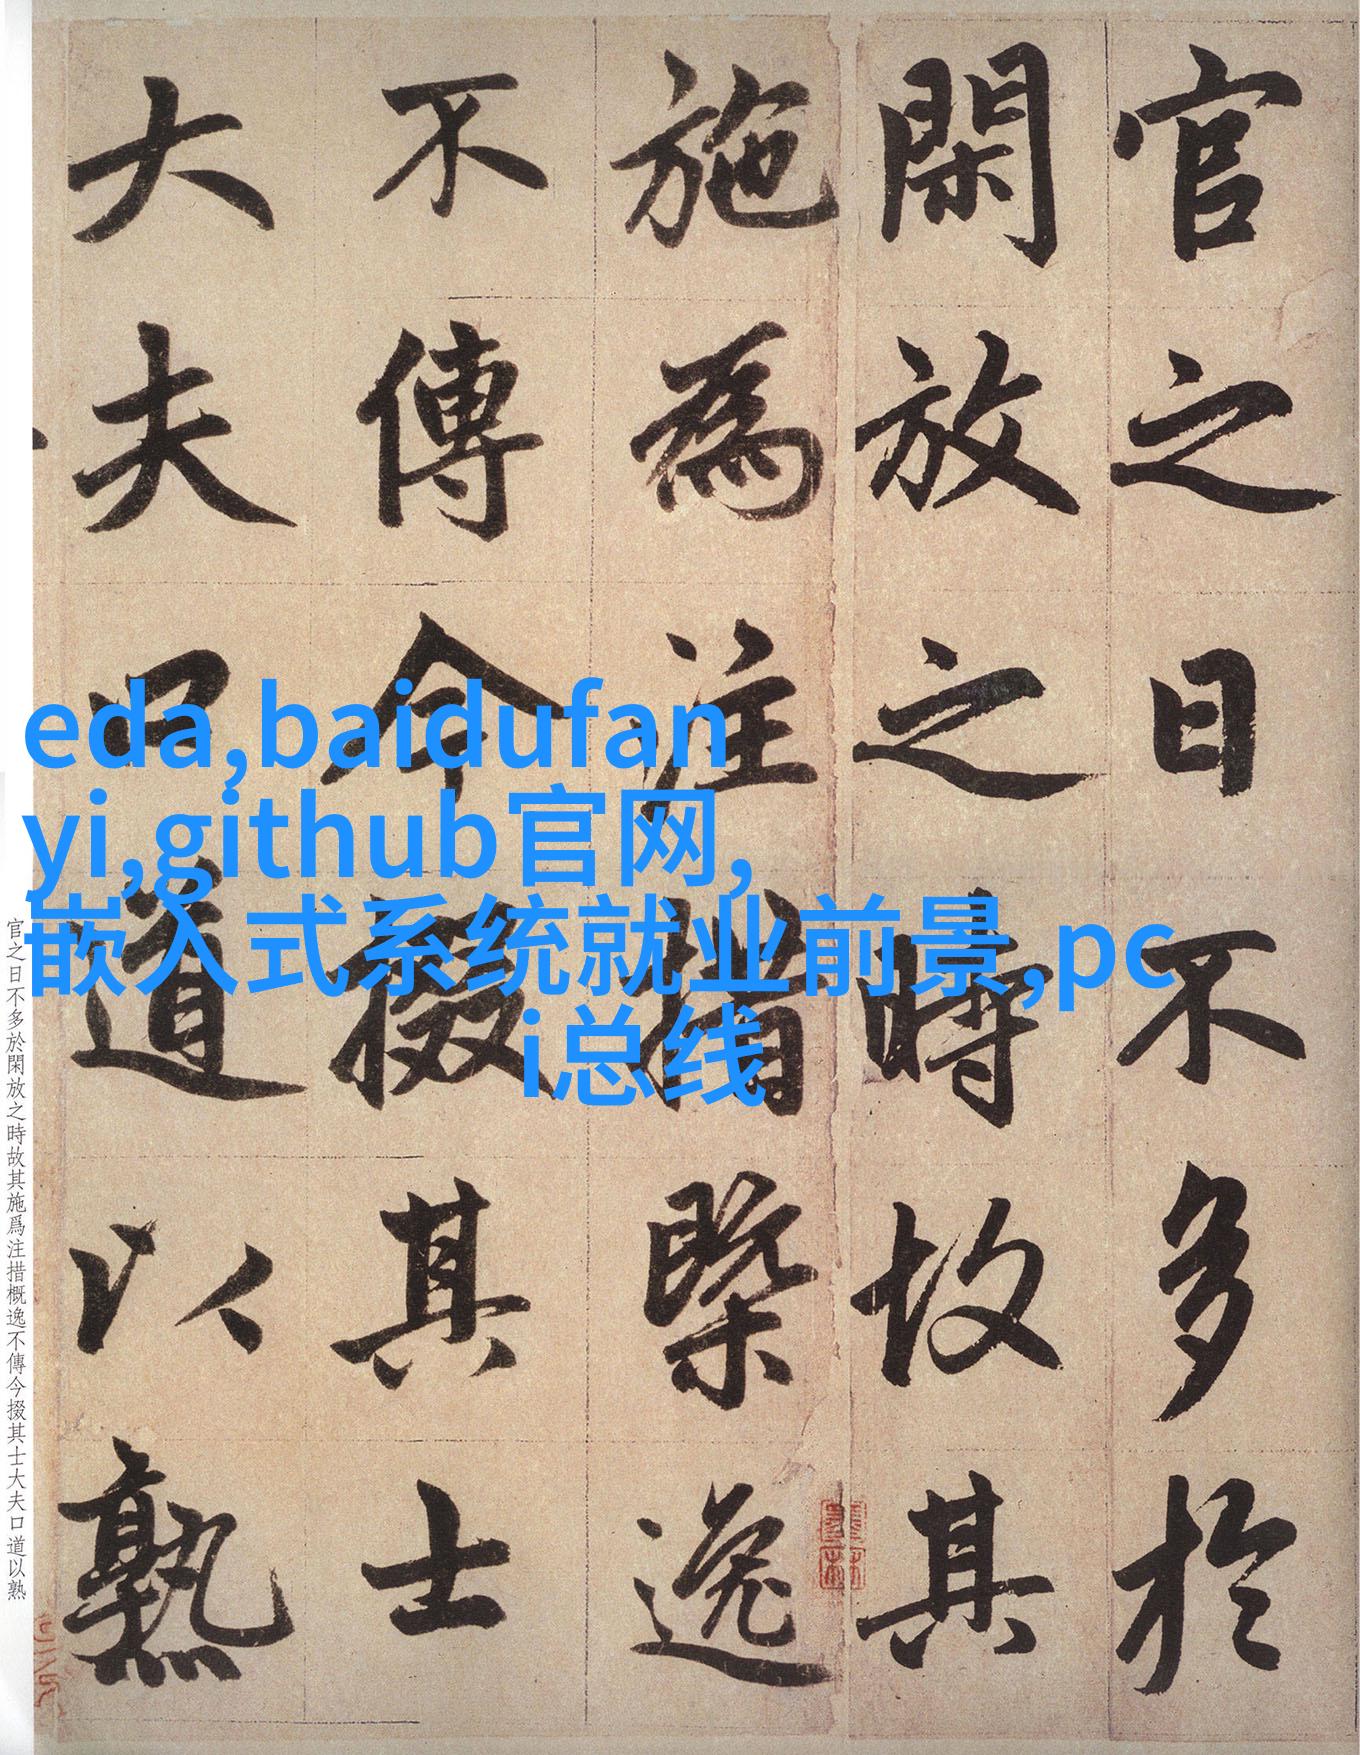 官之日不多於
閑放之時故其
施為注措槩逸
不傳今掇其士
大夫口道以熟
官之日不多於閑放之時故其施爲注措概逸不傳今掇其士大夫口道以熟
eda,baidufan
yi,github官网,
嵌入式系统就业前景,pc
i总线